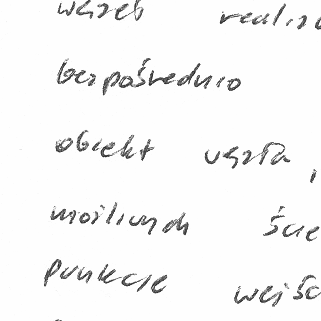 węzeł realizu
bezpośrednio
obiekt węzła,
możliwych ście
punkcie wejśc